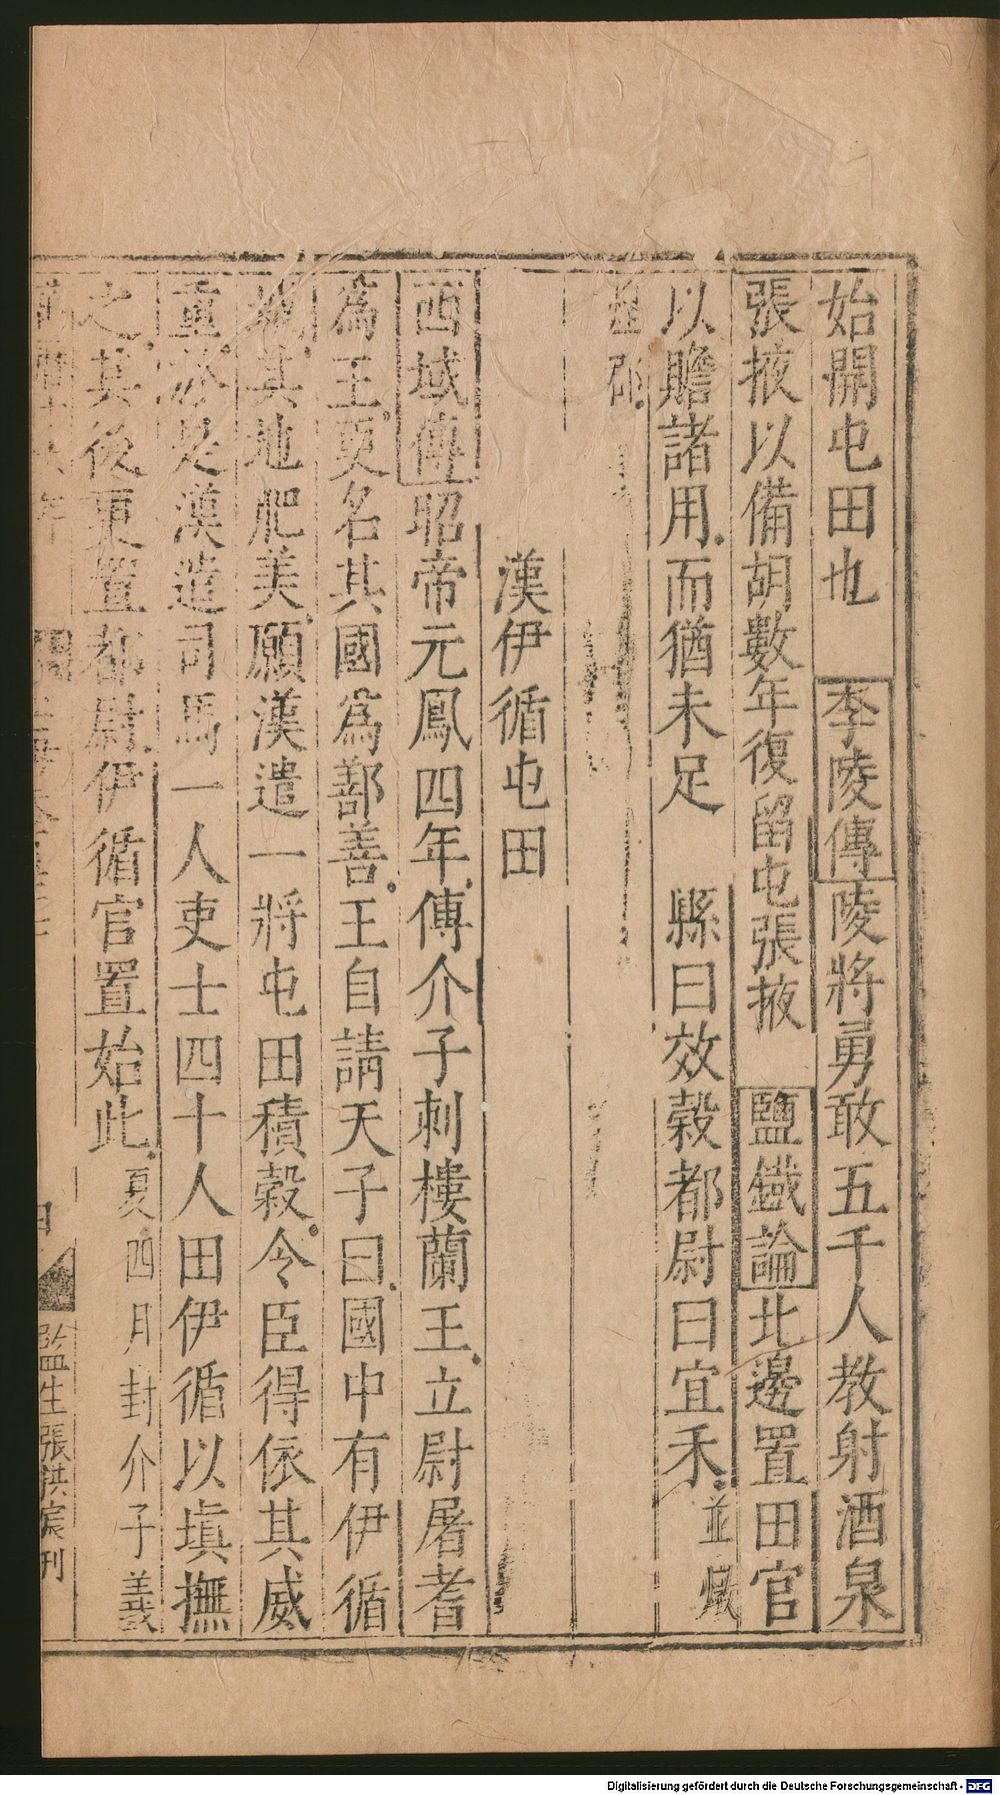 始開屯田也　李陵傳陵將勇敢五千人教射酒泉
張掖以備胡數年復留屯張掖　鹽鐵論北邊置田官
以贍諸用而猶未足　縣曰效穀都尉曰宜禾並燉
煌郡
漢伊循屯田
西域傳昭帝元鳳四年傅介子刺樓蘭王立尉屠耆
為王更名其國為鄯善王自請天子曰國中有伊循
城其地肥美願漢遣一將屯田積穀令臣得依其威
重於是漢遣司馬一人吏士四十人田伊循以塡撫
之其後更置都尉伊循官置始此夏四月封介子義
監生張洪宸刊
Digitalisierung gefördert durch die Deutsche Forschungsgemeinschaft - DFG